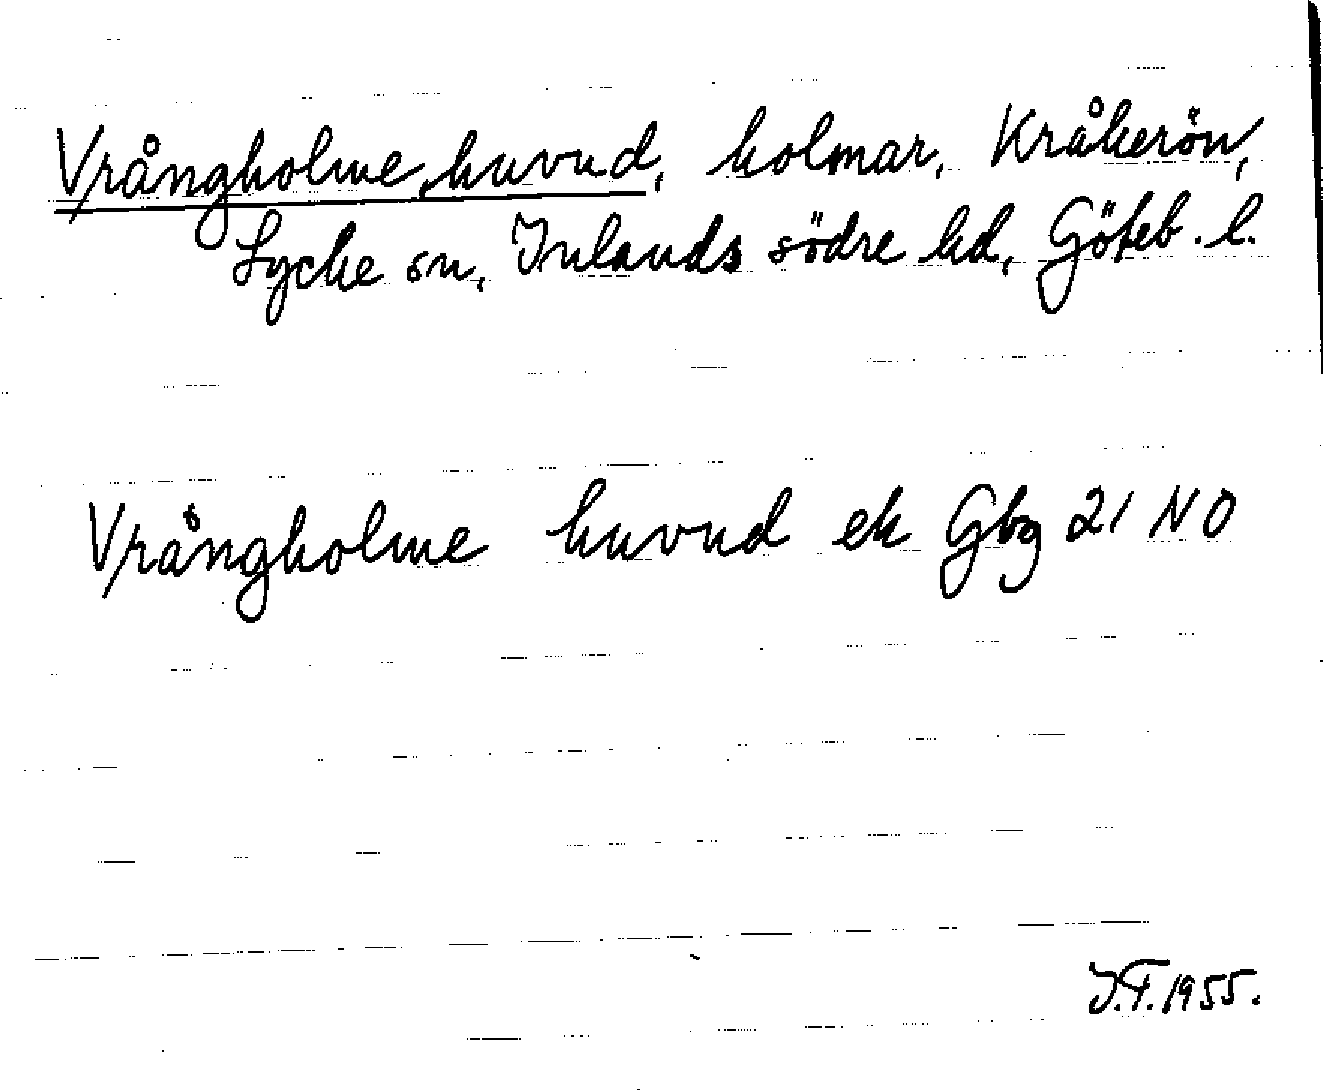 Vrångholme, huvud, holmar, Kråkerön,
Lycke sn, Inlands södre hd, Göteb. l.
Vrångholme huvud ek Gbg 21 NO
J.F. 1955.